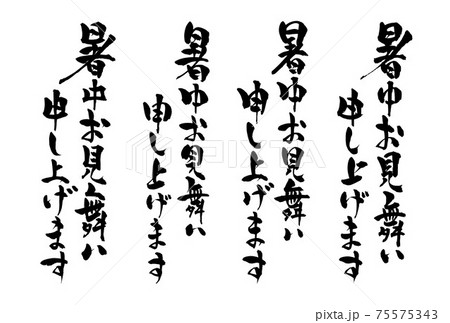 暑中お見舞い
申し上げます
暑中お見舞い
申し上げます
暑中お見舞い
申し上げます
暑中お見舞い
申し上げます
pixta.jp - 75575343